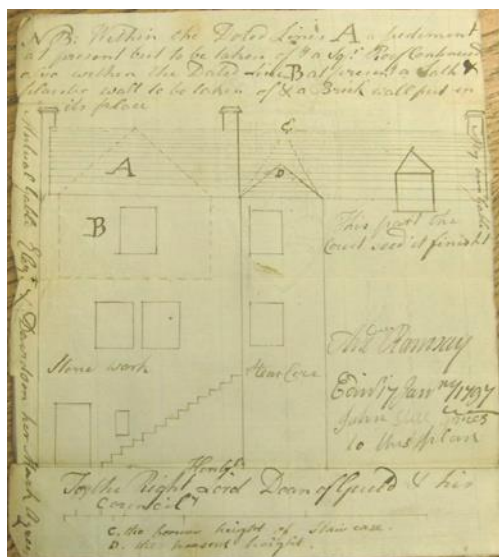 NB: Within the Doted Lines A a pediment
at present but to be taken of & a Sqr. Roof Continued
also within the Doted Line B at present a Lath &
plaister wall to be taken of & a Brick wall put in
its place
C
A
D
B
This part the
Court seed it finisht
Stone work
Stear Case
Ramsay
Edinr 17 Janry 1797
John
to this plan
Honble
To the Right Lord Dean of Guild & his
Council
C. the former height of Stair case.
D. the present height.
Mutual Gable Eliz. Davidson her Mark
Gable